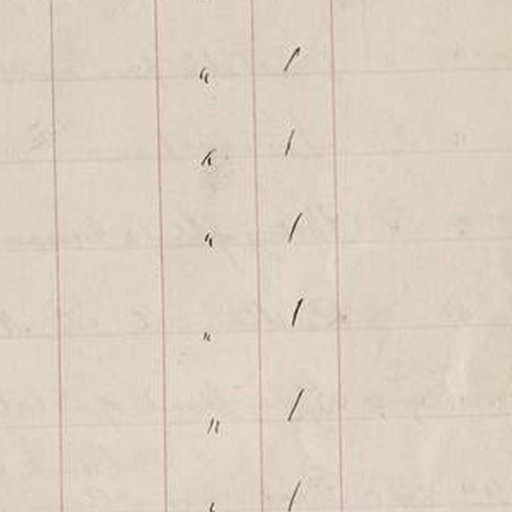 " /
" /
" /
" /
" /
" /